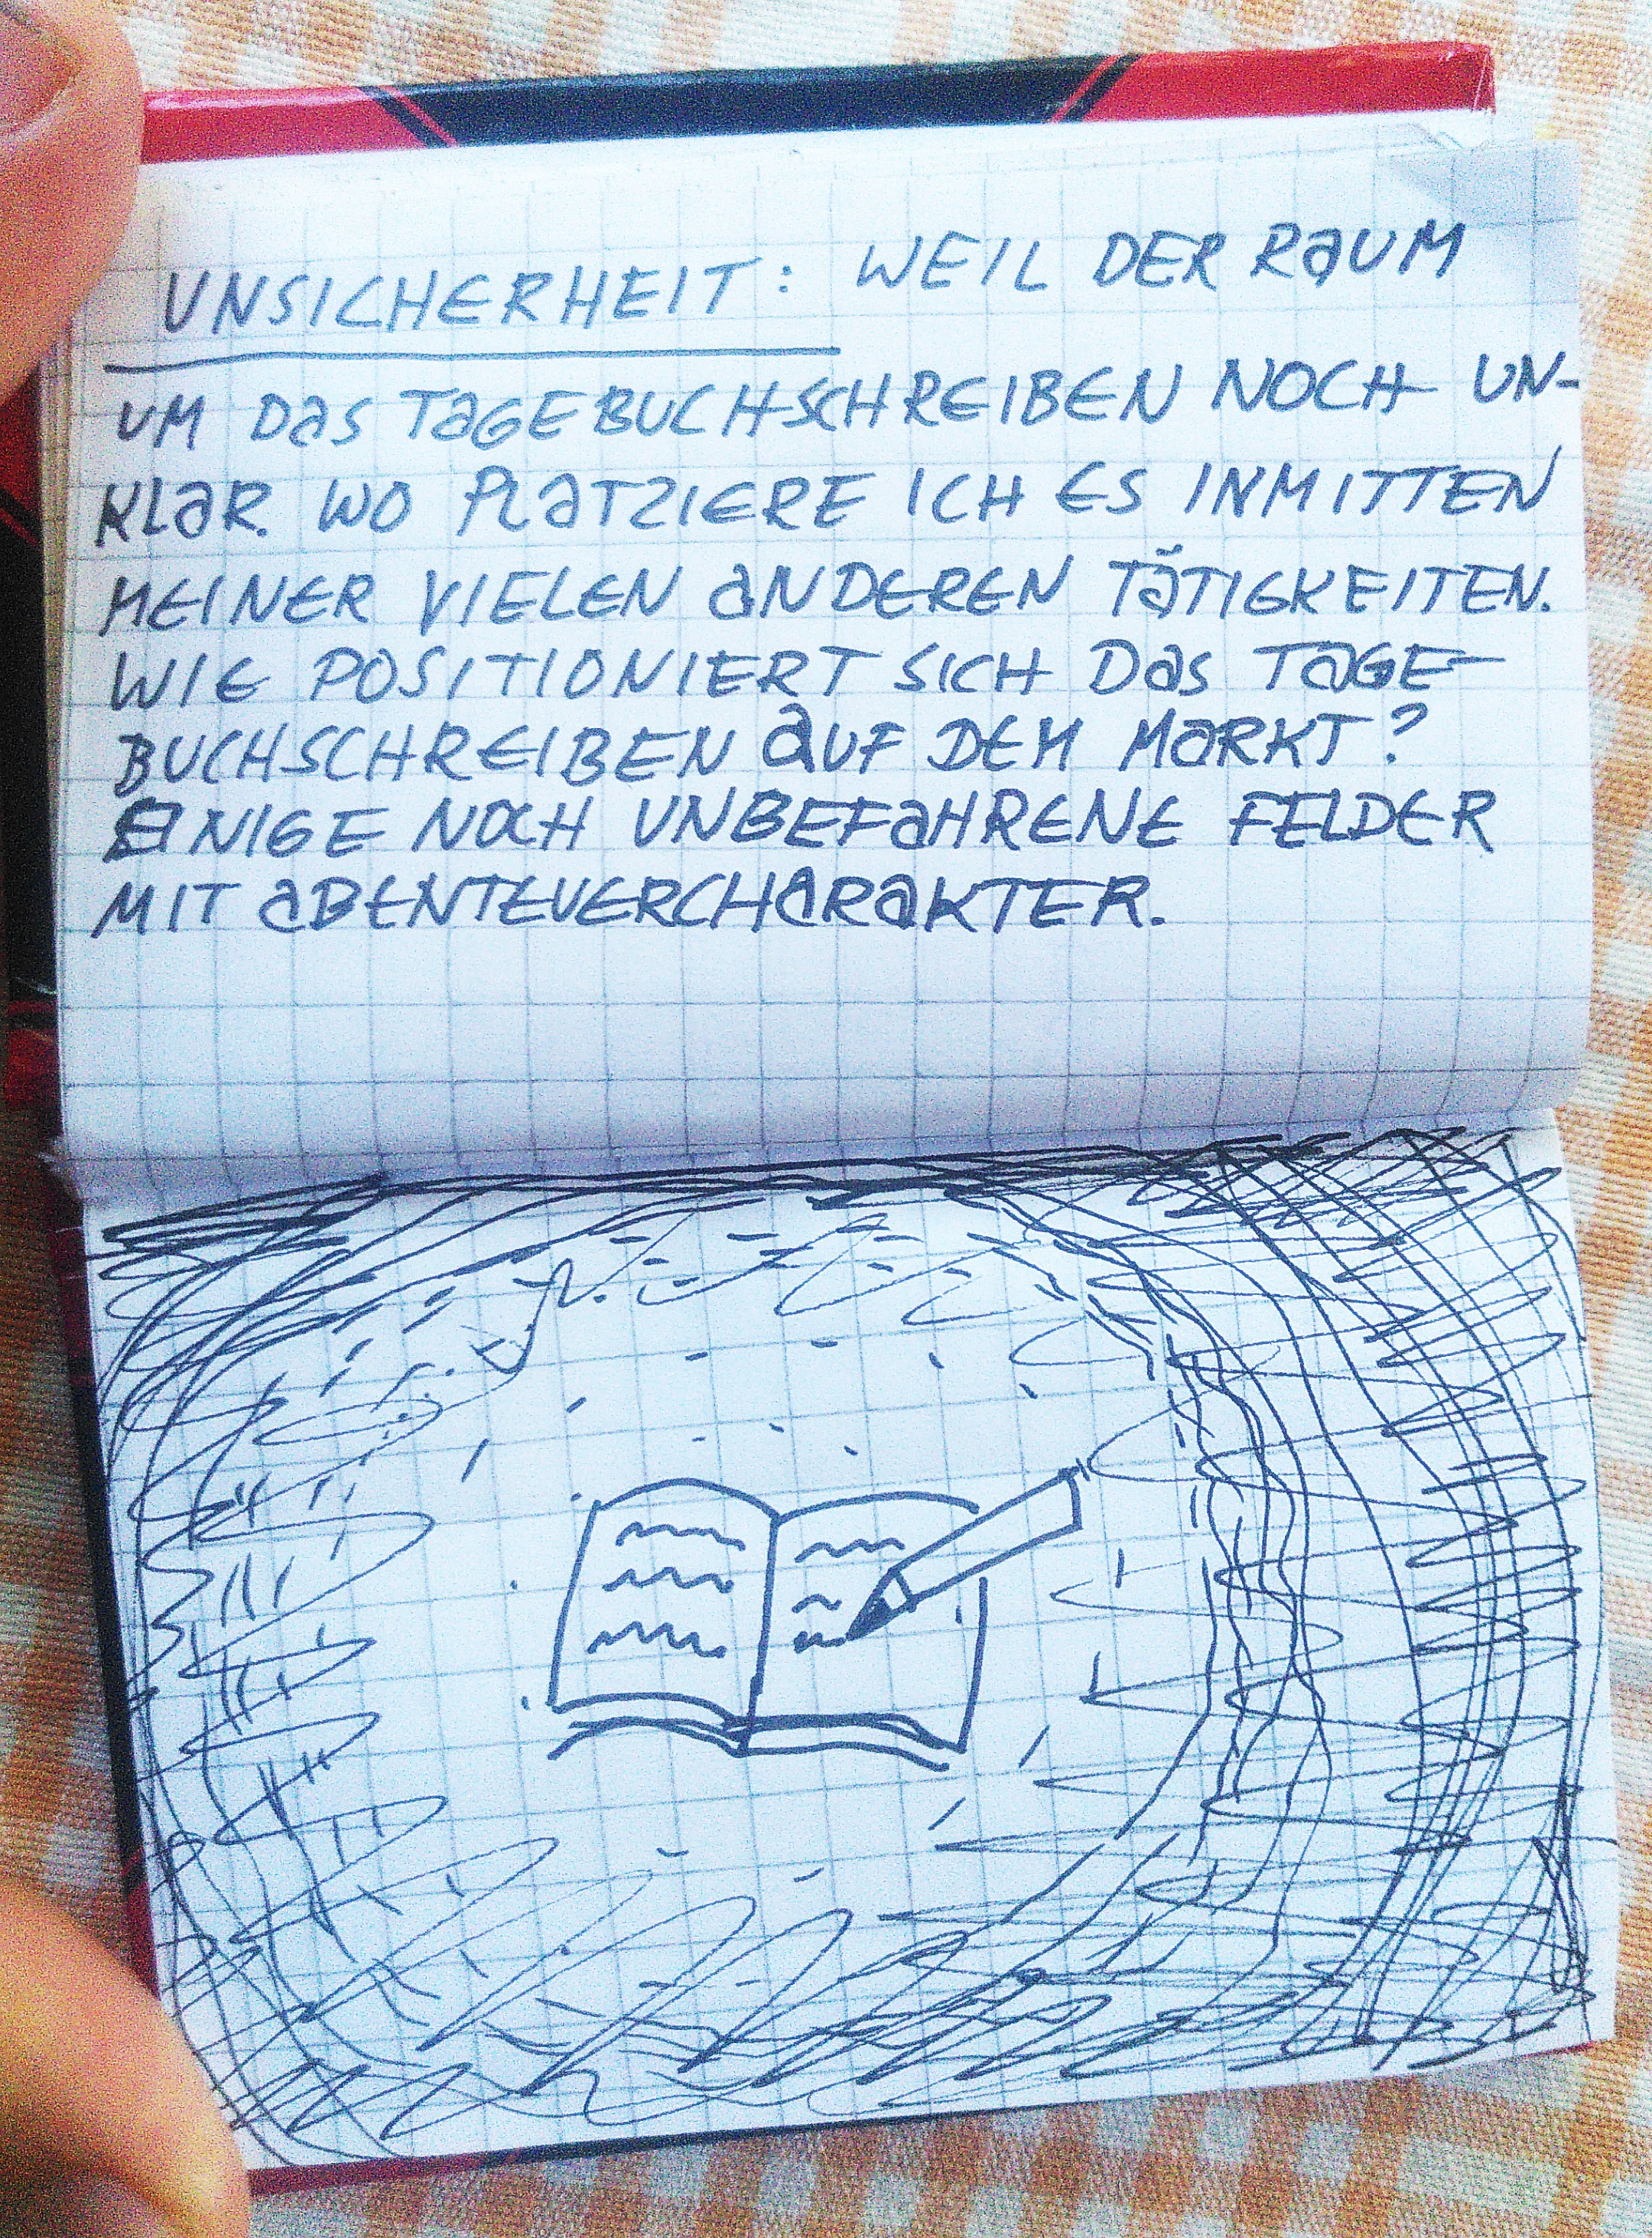 UNSICHERHEIT: WEIL DER RAUM
UM DAS TAGEBUCHSCHREIBEN NOCH UN-
KLAR. WO PLATZIERE ICH ES INMITTEN
MEINER VIELEN ANDEREN TÄTIGKEITEN.
WIE POSITIONIERT SICH DAS TAGE-
BUCHSCHREIBEN AUF DEM MARKT?
EINIGE NOCH UNBEFAHRENE FELDER
MIT ABENTEUERCHARAKTER.